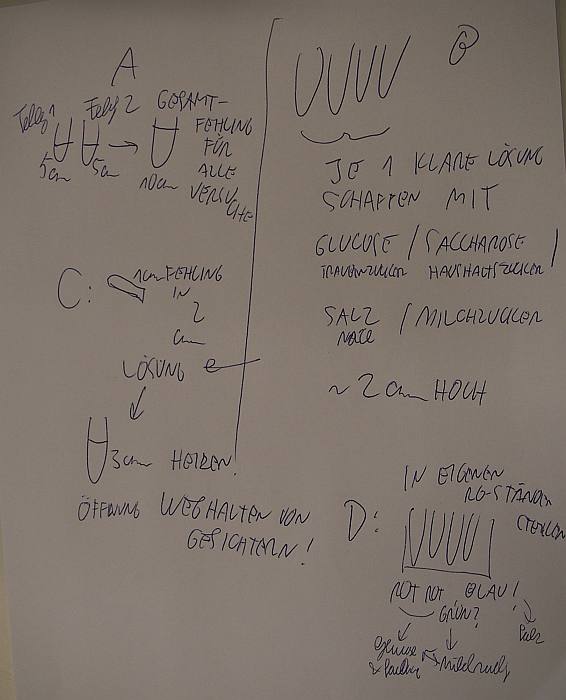 A
Fehling 1 Fehling 2 GESAMT-
FEHLING
FÜR
ALLE
VERSU
CHE
5cm 5cm 10cm
B
JE 1 KLARE LÖSUNG
SCHAFFEN MIT
GLUCOSE / SACCHAROSE /
TRAUBENZUCKER HAUSHALTSZUCKER
SALZ / MILCHZUCKER
NaCl
~ 2 cm HOCH
C: 1cm FEHLING
IN
2
cm
LÖSUNG
3cm HEIZEN!
ÖFFNUNG WEGHALTEN VON
GESICHTERN!
IN EIGENEN
RG-STÄNDER
STELLEN
D:
ROT ROT BLAU!
GRÜN?
Glucose Salz
& Milchzucker